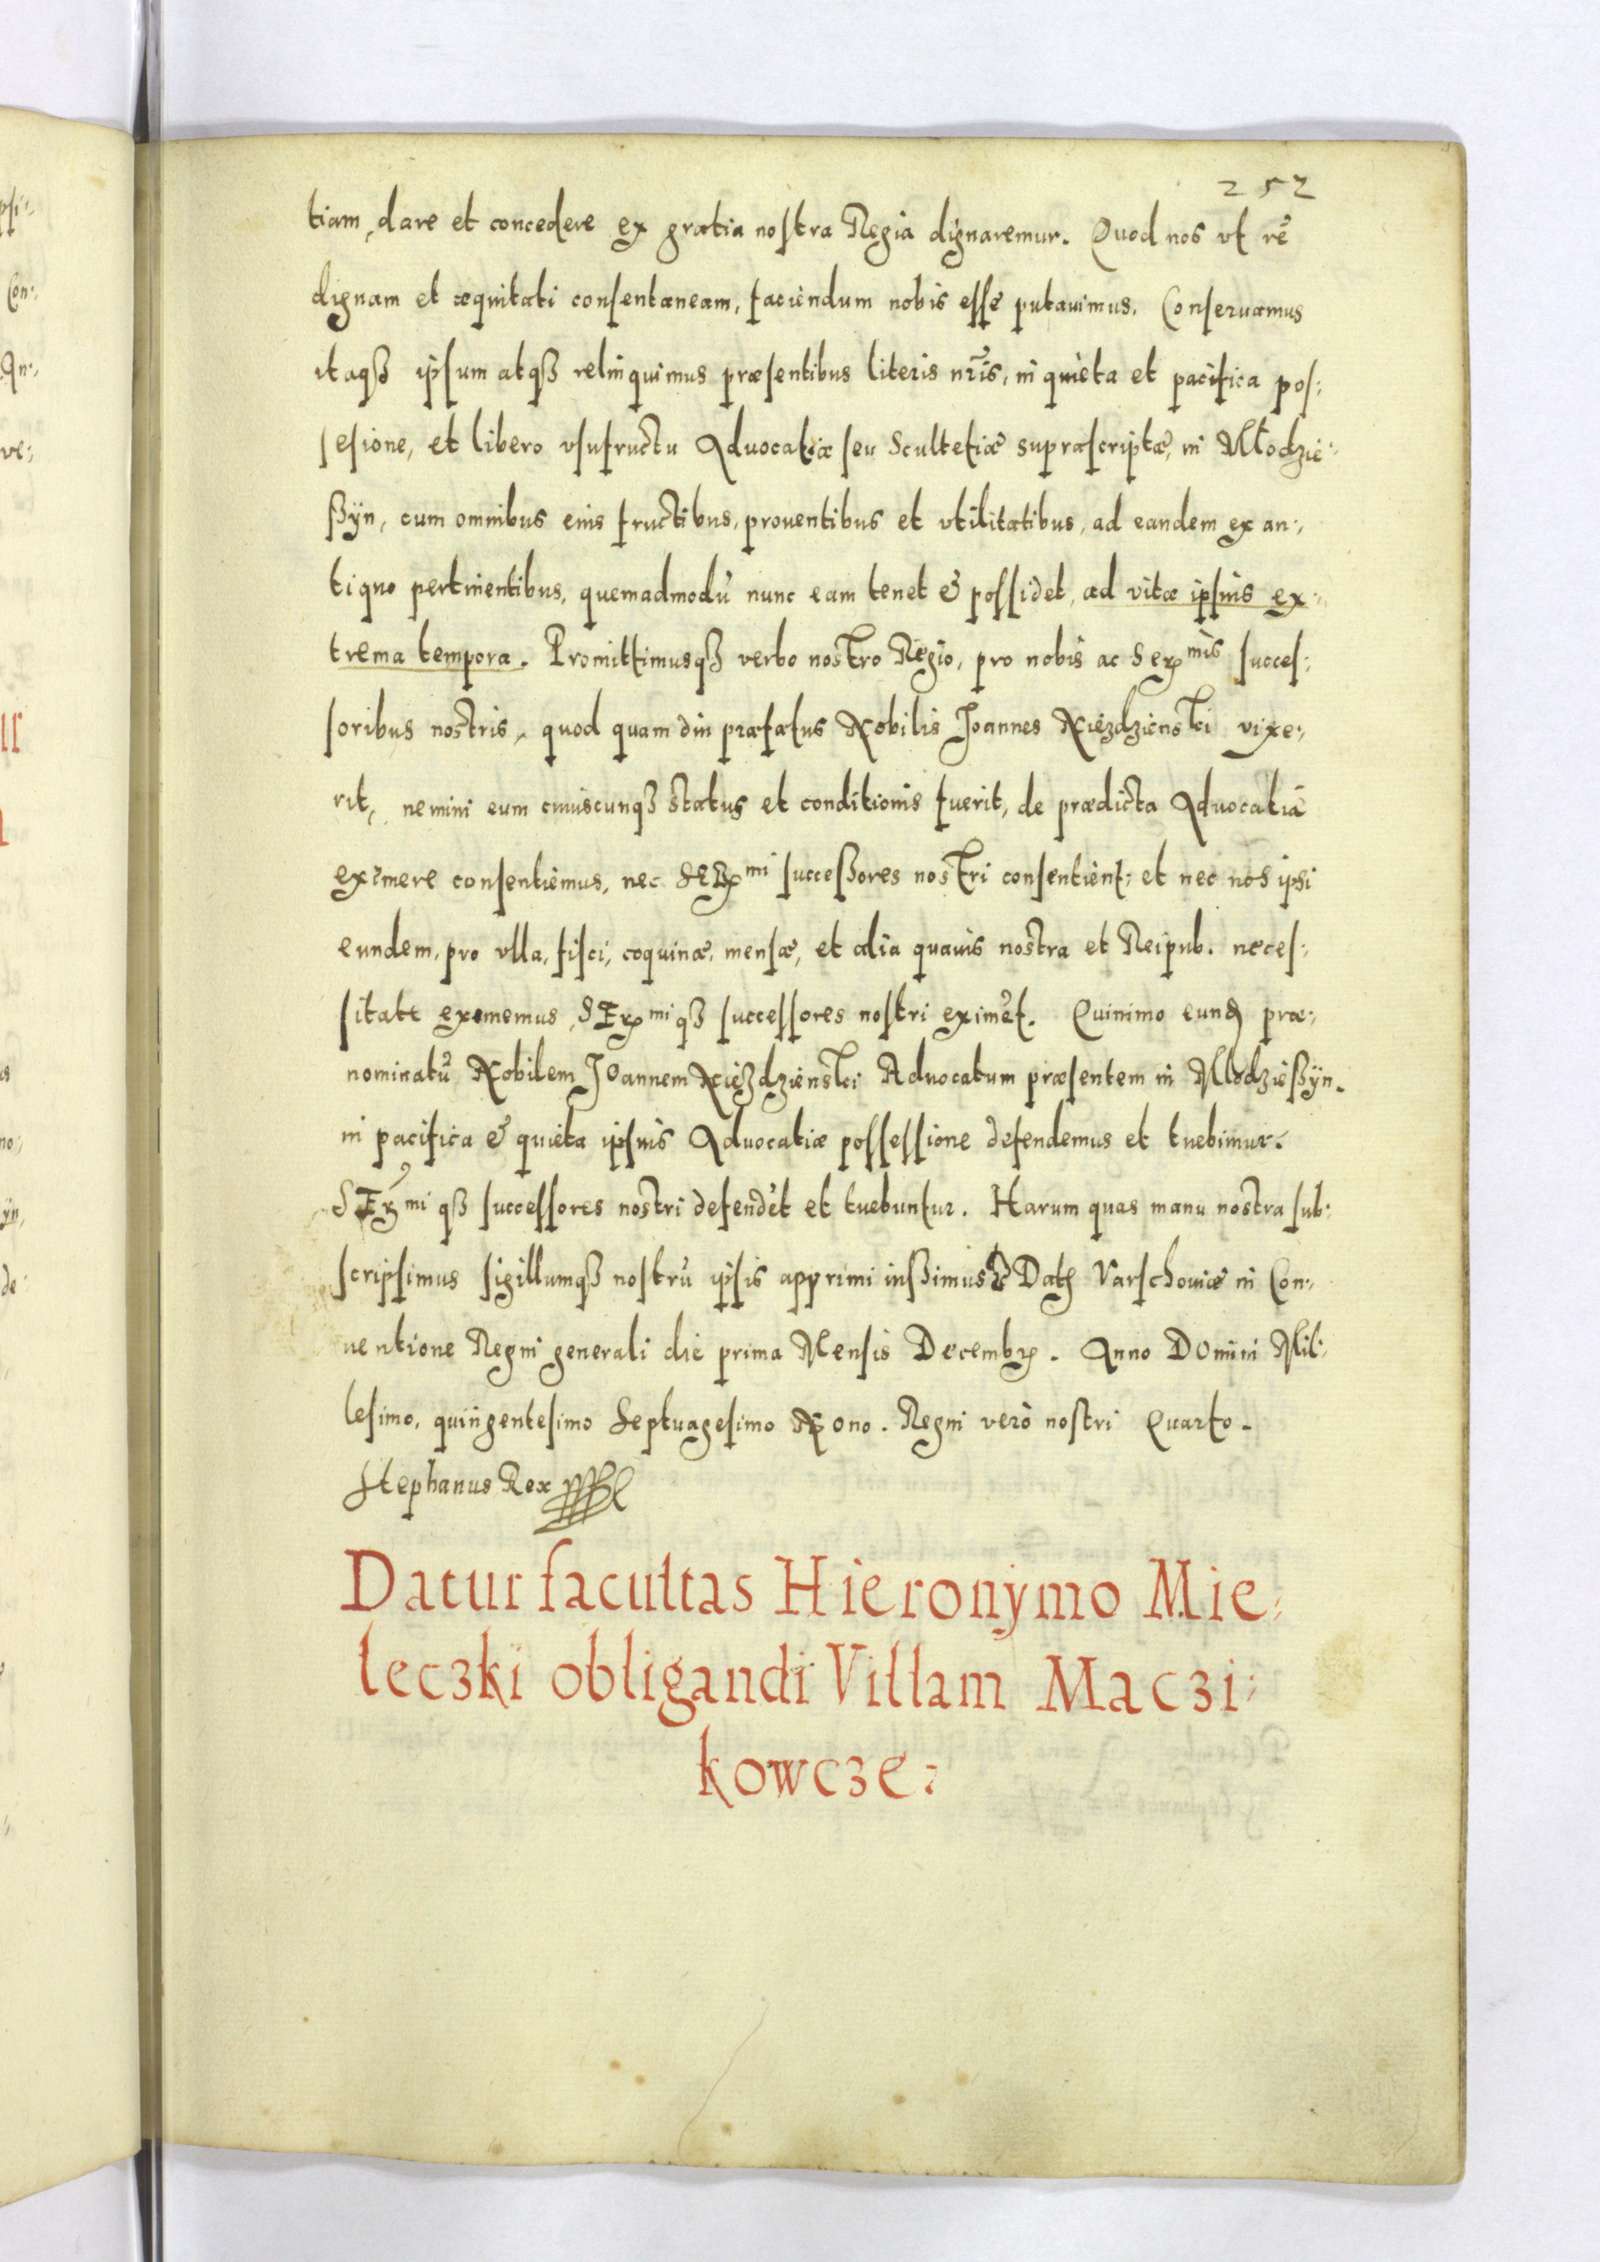 252
tiam, dare et concedere ex gratia nostra Regia dignaremur. Quod nos vt rē
dignam et æquitati consentaneam, faciendum nobis esse putauimus. Conseruamus
itaqꝫ ipsum atqꝫ relinquimus præsentibus literis nr̃is, in quieta et pacifica pos:
sesione, et libero vsufructu Aduocatiæ seu Scultetiæ supræscriptæ, in Młodzie:
ßÿn, cum omnibus eius fructibus, prouentibus et vtilitatibus, ad eandem ex an:
tiquo pertinentibus, quemadmodū nunc eam tenet & possidet, ad vitæ ipsius ex:
trema tempora. Promittimusqꝫ verbo nostro Regio, pro nobis ac Ser^mis succes:
soribus nostris, quod quam diu præfatus Nobilis Joannes Niezdzienski vixe:
rit, nemini eum cuiuscunqꝫ status et conditionis fuerit, de prædicta Aduocatiā
eximere consentiemus, nec SER^mi succeßores nostri consentient: et nec nos ipsi
eundem, pro vlla, fisci, coquinæ, mensæ, et alia quauis nostra et Reipub. neces:
sitate exememus, SEr^mi qꝫ successores nostri eximēt. Quinimo eund præ:
nominatū Nobilem JOannem Niezdzienski Aduocatum præsentem in Młodzießÿn.
in pacifica & quieta ipsius Aduocatiæ possessione defendemus et tuebimur.
SEr^mi qꝫ successores nostri defendēt et tuebuntur. Harum quas manu nostra sub:
scripsimus sigillumqꝫ nostrū ipsis apprimi iußimus Dat Varschouiæ in Con:
uentione Regni generali die prima Mensis Decembr. Anno DOmini Mil:
lesimo, quingentesimo Septuagesimo Nono. Regni verò nostri Quarto.
Stephanus Rex
Datur facultas Hieronymo Mie:
leczki obligandi Villam Maczi:
kowcze: